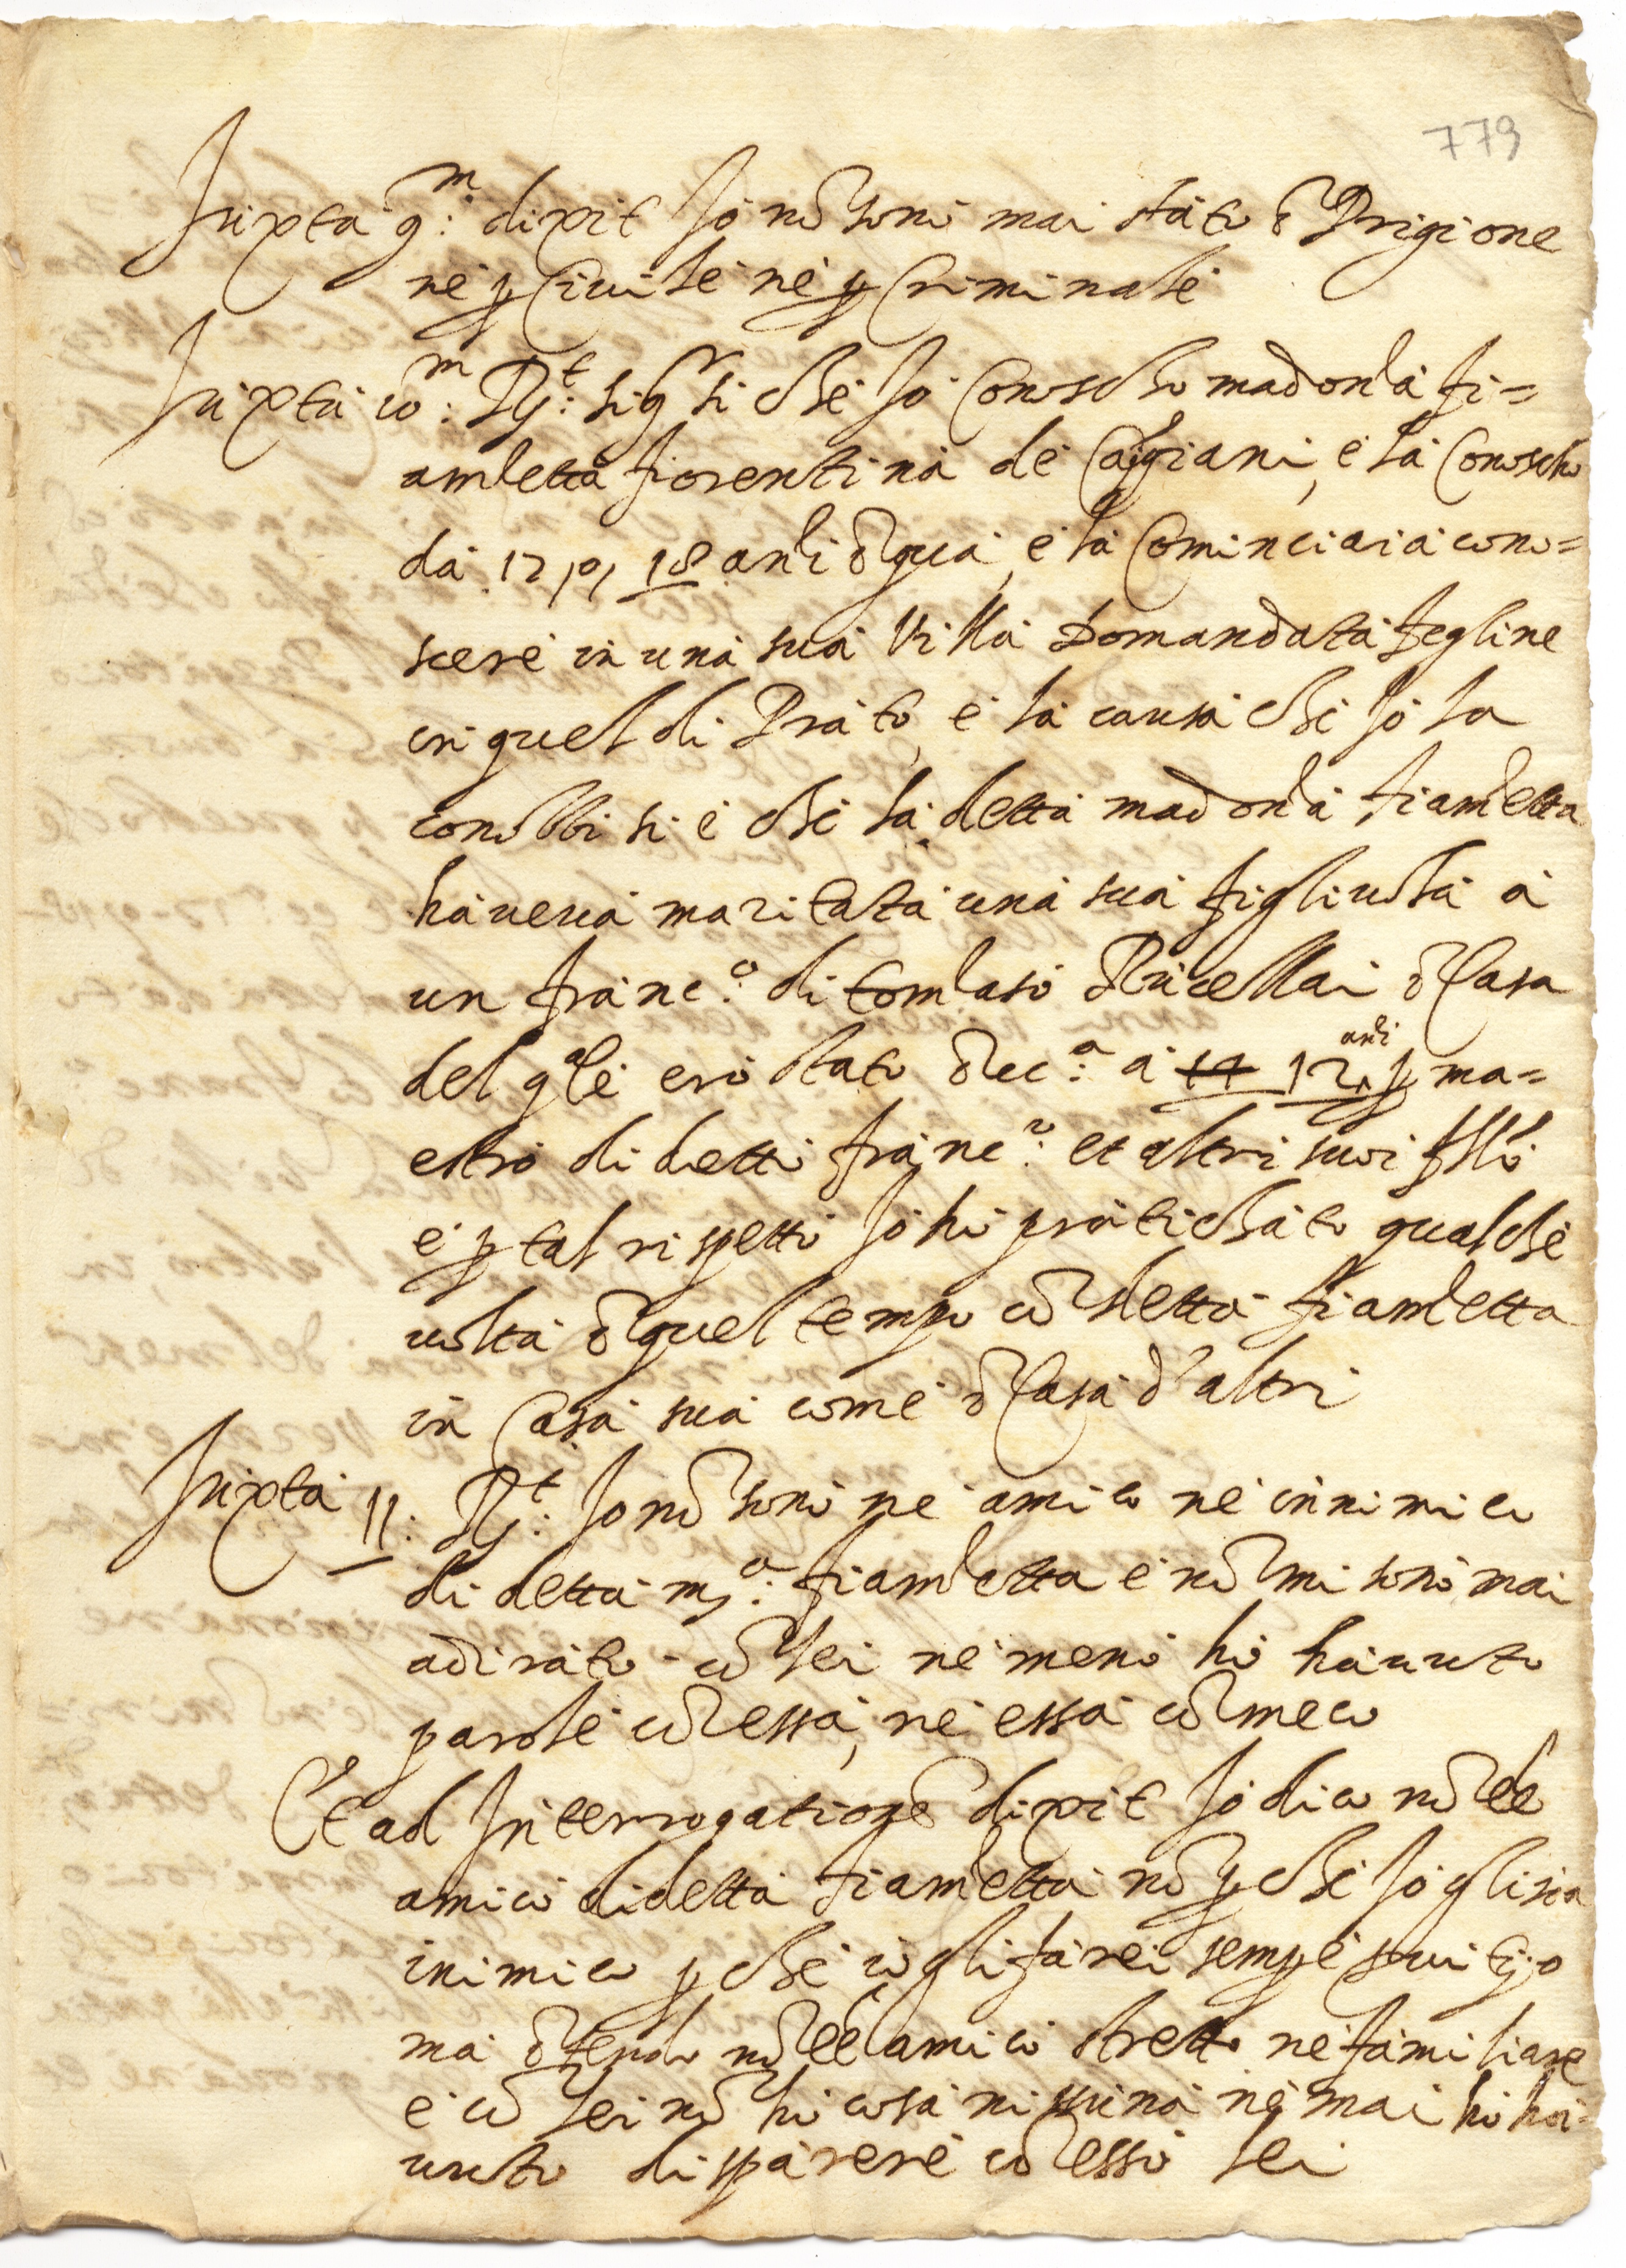 779
Iuxta 9.m dixit Io nō sono mai stato ī Prigione
ne p Ciuile ne p Criminale
Iuxta io.m Rt: sigr si che Io Conoscho madonna fi=
ammetta fiorentina de e la Conoscho
da 17 o, 18 anni ī qua, e la Cominciai a cono=
scere in una sua Villa Domandata fegline
in quel di Prato, e la causa che Io la
conobbi si e che la detta madonna fiammetta
haueua maritata una sua figliuola a
un franc.o di tommaso Rucellai ī Casa
del qle ero stato ī a 14 12 anni p ma=
estro di detto franc.o et altri suoi flli
e p tal rispetto Io ho pratichato qualche
uolta ī quel tempo cō detta fiammetta
in Casa sua come ī Casa d'altri
Iuxta 11: Rt: Io nō sono ne amico ne innimico
di detta ma: fiammetta e nō mi sono mai
adirato cō lei ne meno ho hauuto
parole cō essa, ne essa cō meco
Et ad Interrogationē dixit Io dico nō eē
amico di detta fiammetta nō p che Io gli sia
inimico p che io gli farei sempe
ma ītendo nō eē amico stretto ne familiare
e cō lei nō ho cosa nissuna ne mai ho ha=
uuto disparere cō esso lei